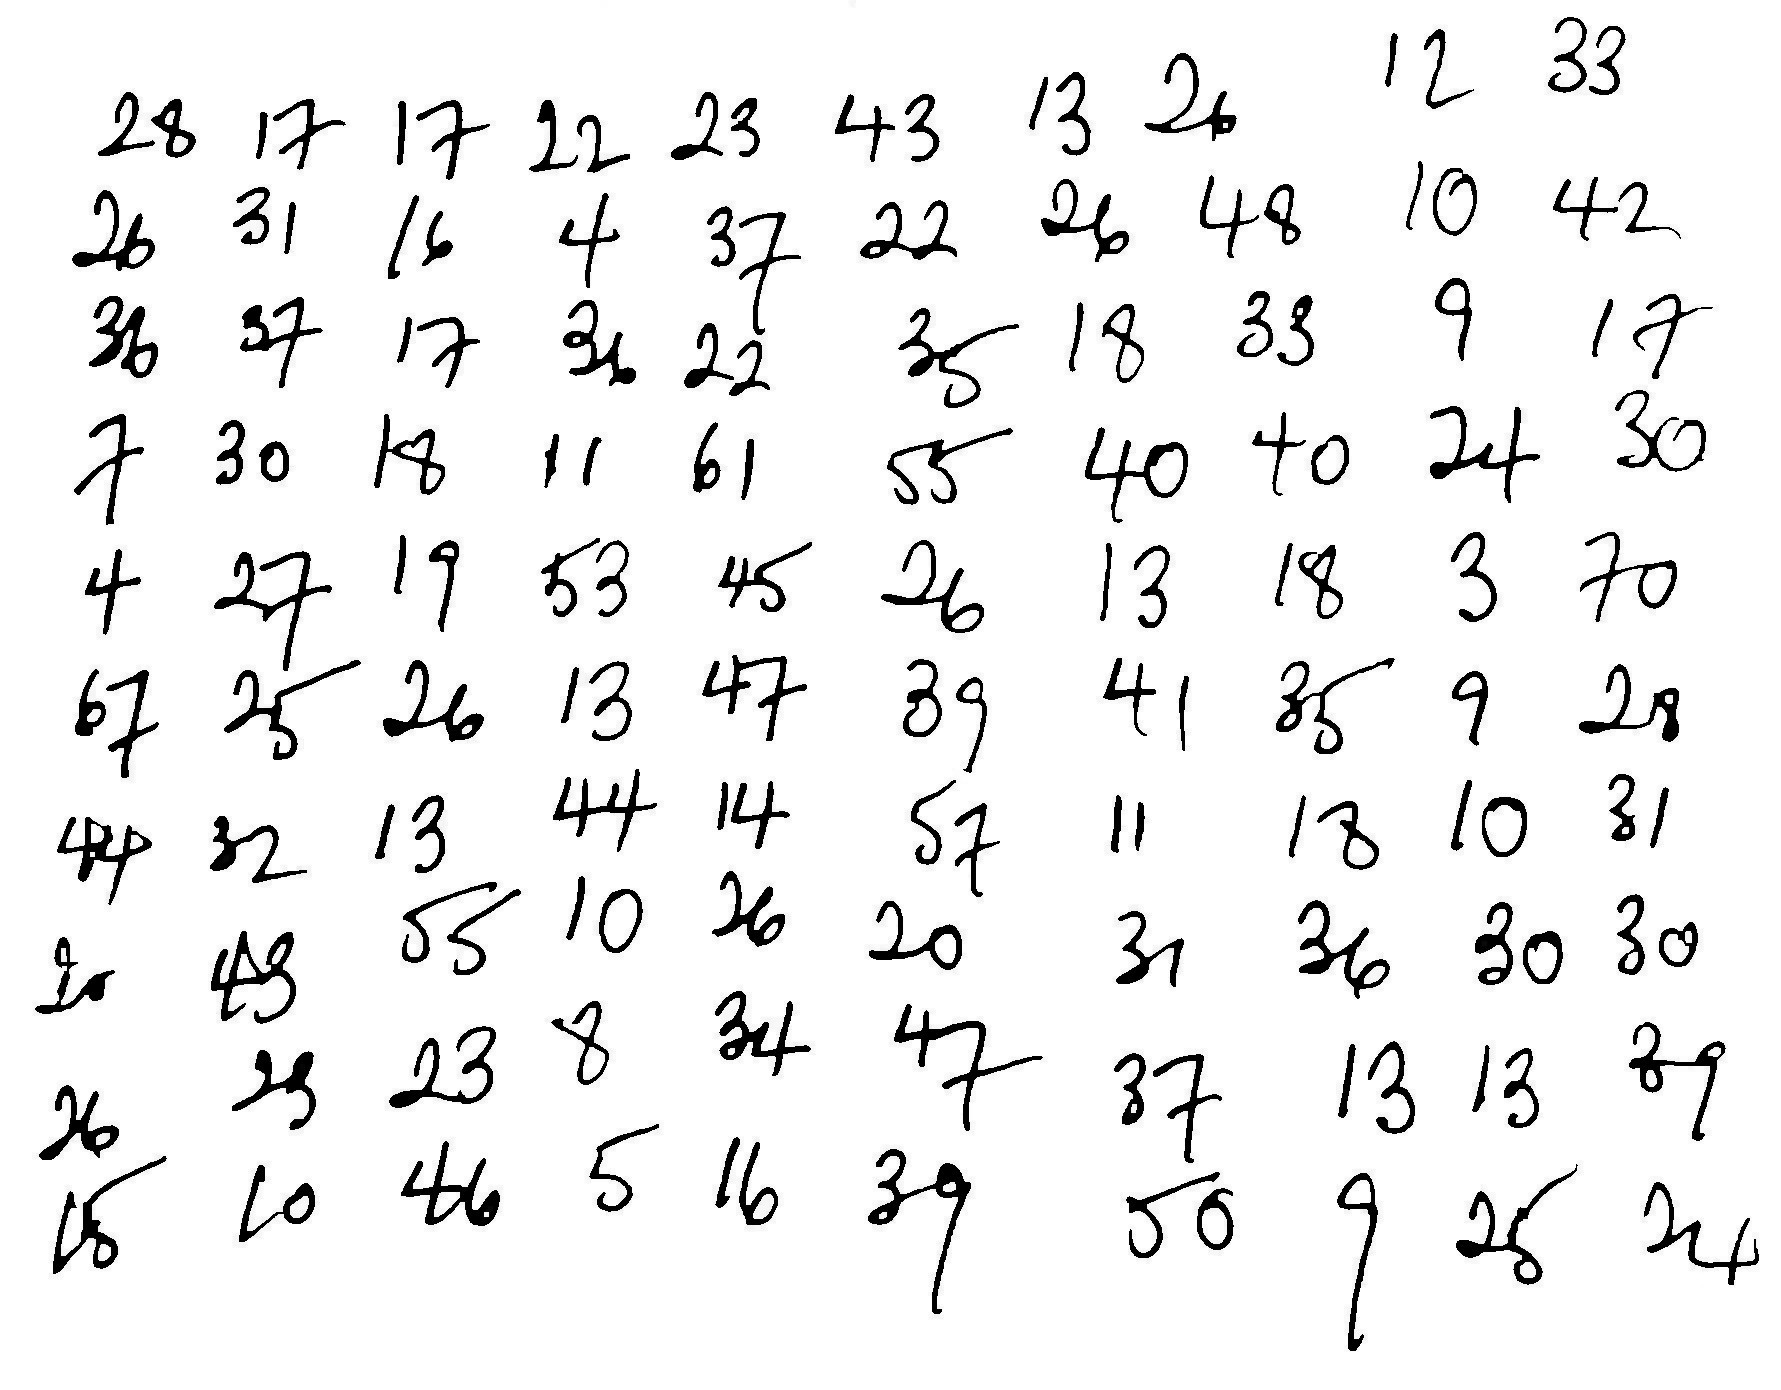 28 17 17 22 23 43 13 26 12 33
26 31 16 4 37 22 26 48 10 42
36 37 17 36 22 35 18 33 9 17
7 30 18 11 61 55 40 40 24 30
4 27 19 53 45 26 13 18 3 70
67 25 26 13 47 39 41 35 9 28
44 32 13 44 14 57 11 18 10 31
20 43 55 10 26 20 31 36 30 30
26 23 23 8 34 47 37 13 13 39
15 10 46 5 16 39 50 9 25 24